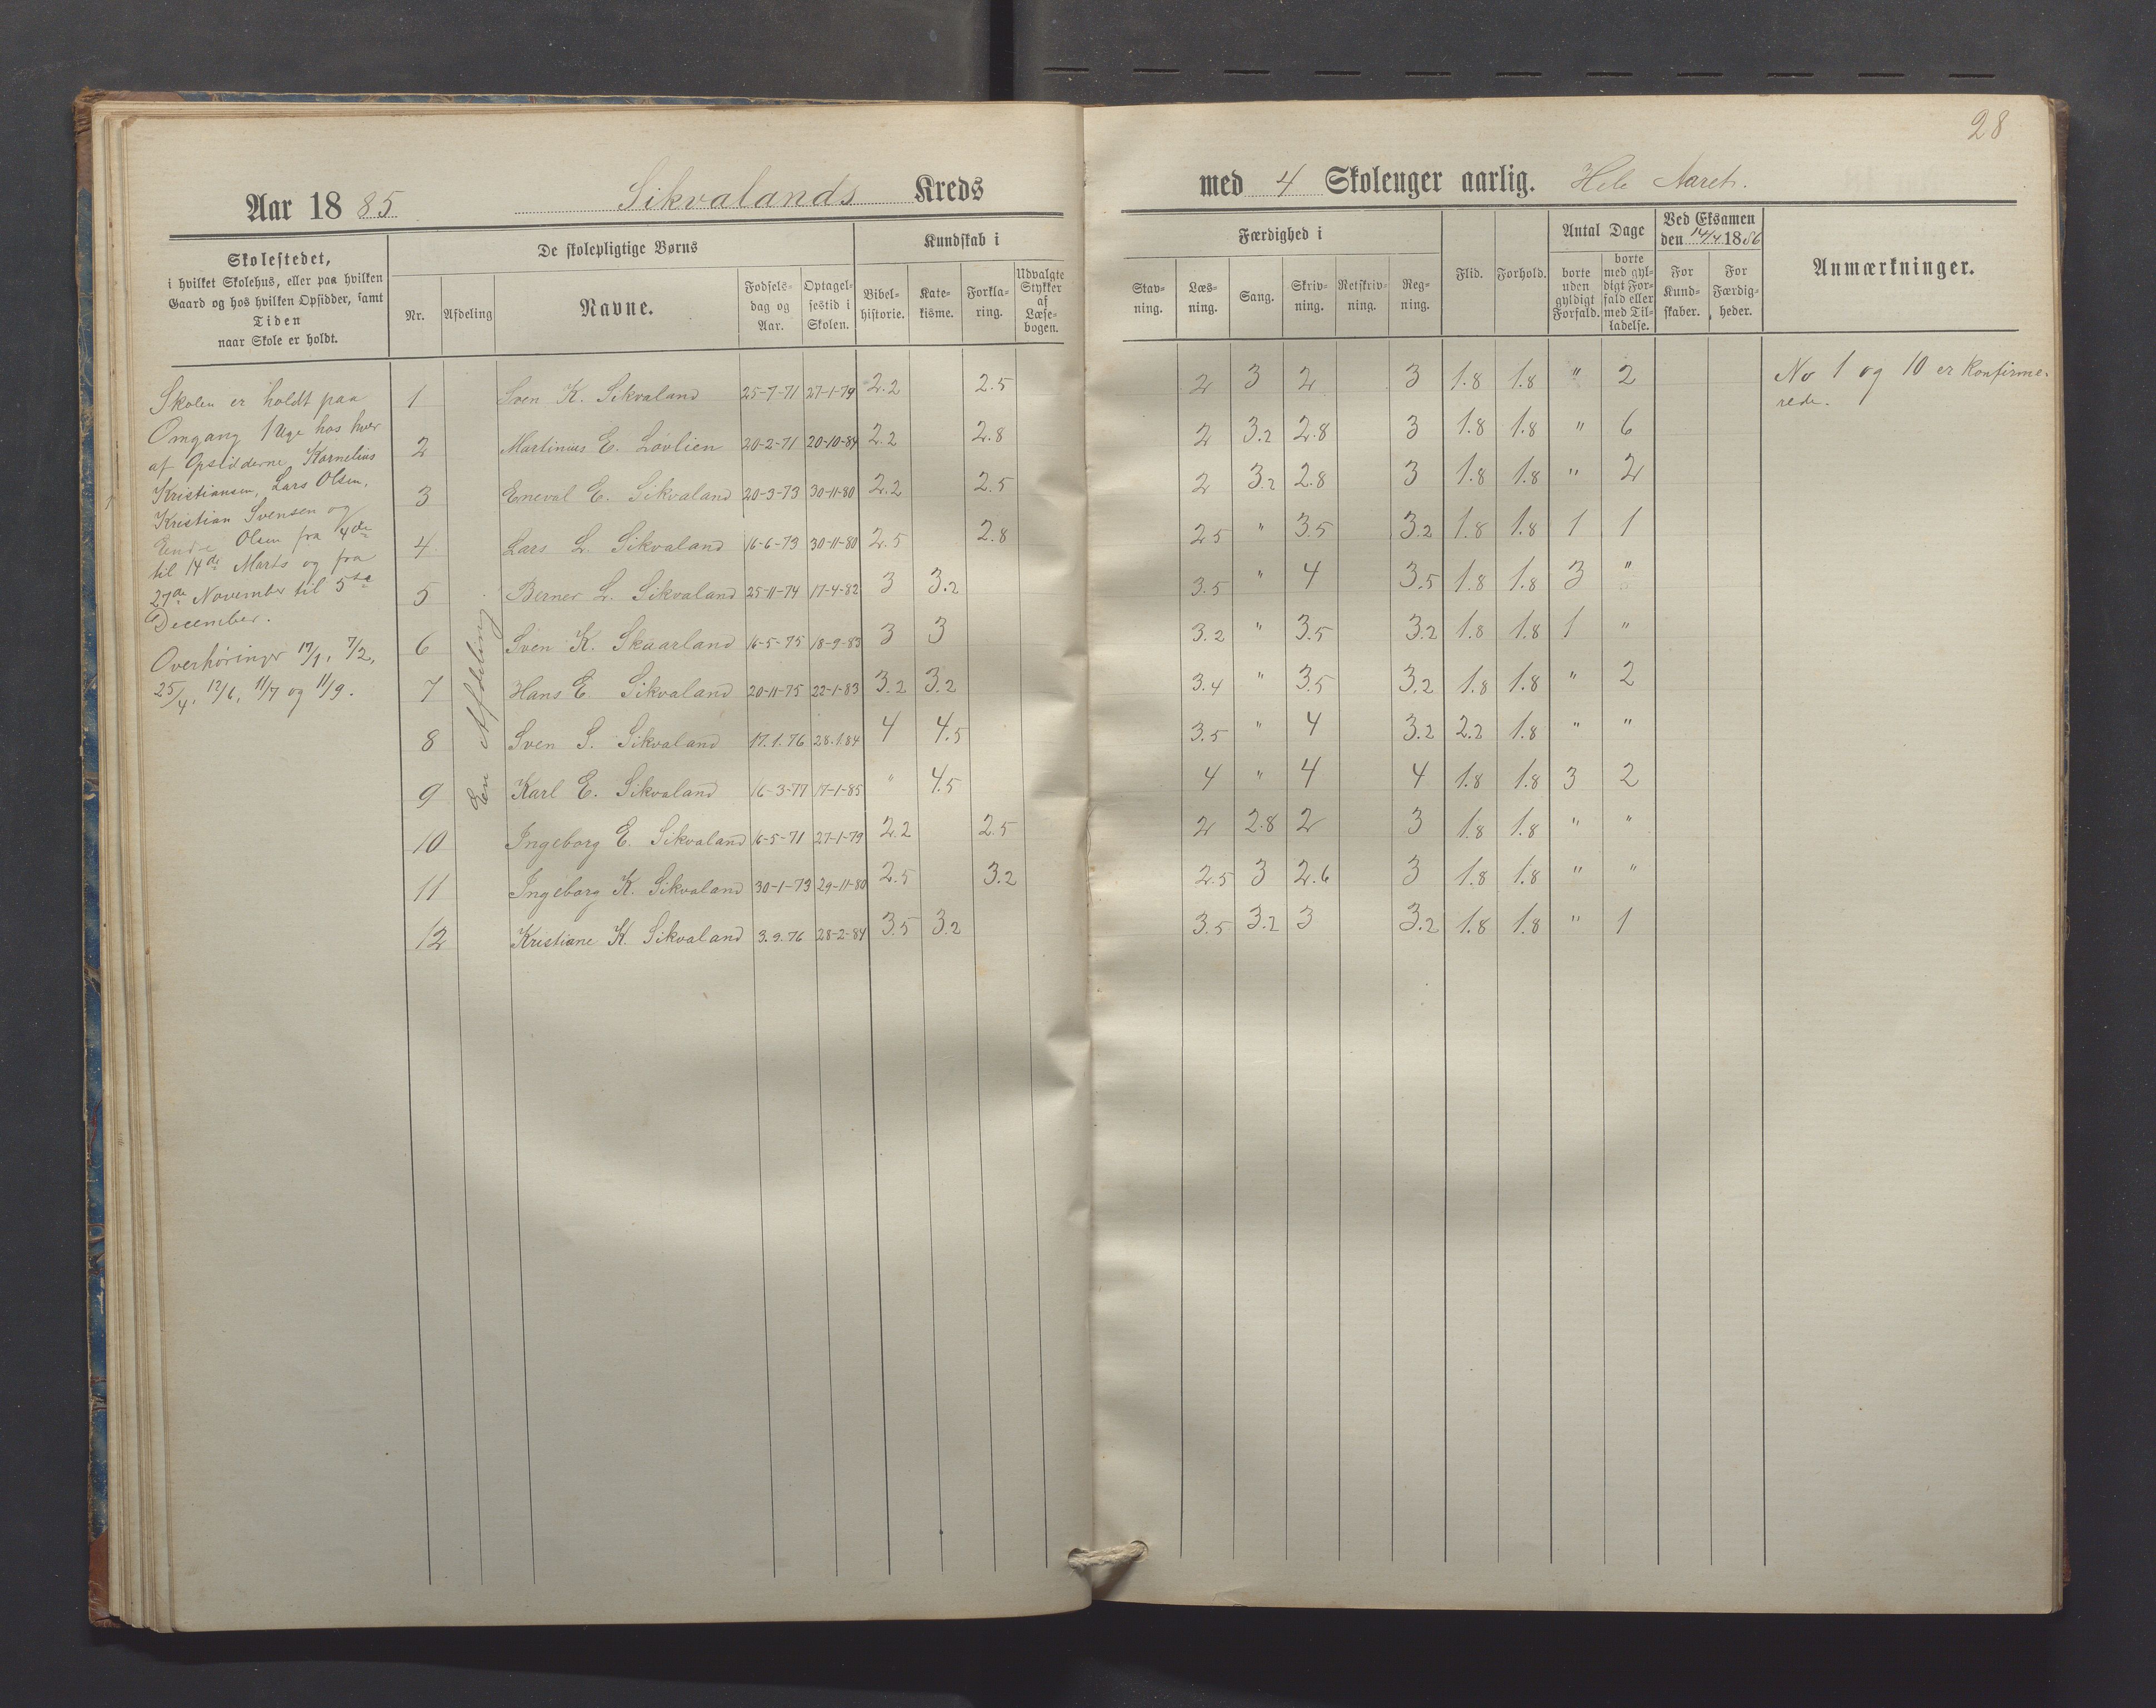 28
Aar 1885 Sikvalands Kreds
med 4 Skoleuger aarlig. Hele Aaret.
Skolestedet,
i hvilket Skolehus, eller paa hvilken
Gaard og hos hvilken Opsidder, samt
Tiden
naar Skole er holdt.
De skolepligtige Børns
Nr.
Afdeling
Navne.
Fødsels-
dag og
Aar.
Optagel-
sestid i
Skolen.
Kundskab i
Bibel-
historie.
Kate-
kisme.
Forkla-
ring.
Udvalgte
Stykker
af
Læse-
bogen.
Færdighed i
Stav-
ning.
Læs-
ning.
Sang.
Skriv-
ning.
Retskriv-
ning.
Reg-
ning.
Flid.
Forhold.
Antal Dage
borte
uden
gyldigt
Forfald.
borte
med gyl-
digt For-
fald eller
med Til-
ladelse.
Ved Eksamen
den 14/4 1886
For
Kund-
skaber.
For
Færdig-
heder.
Anmærkninger.
Skolen er holdt paa
Omgang 1 Uge hos hver
af Opsidderne Kornelius
Kristiansen, Lars Olsen,
Kristian Svensen og
Olsen fra 4de
til 14de Marts og fra
27de November til 5te
December.
Overhøringer 17/1, 7/2,
25/4, 12/6, 11/7 og 11/9.
En Afdeling.
1 Sven K. Sikvaland 25-7-71 27-1-79 2.2 2.5 2 3 2 3 1.8 1.8 " 2
2 Martinius E. Løvlien 20-2-71 20-10-84 2.2 2.8 2 3.2 2.8 3 1.8 1.8 " 6
3 Eneval E. Sikvaland 20-3-73 30-11-80 2.2 2.5 2 3.2 2.8 3 1.8 1.8 " 2
4 Lars L. Sikvaland 16-6-73 30-11-80 2.5 2.8 2.5 " 3.5 3.2 1.8 1.8 1 1
5 Berner L. Sikvaland 25-11-74 17-4-82 3 3.2 3.5 " 4 3.5 1.8 1.8 3 "
6 Sven K. Skaarland 16-5-75 18-9-83 3 3 3.2 " 3.5 3.2 1.8 1.8 1 "
7 Hans E. Sikvaland 20-11-75 22-1-83 3.2 3.2 3.4 " 3.5 3.2 1.8 1.8 " 2
8 Sven S. Sikvaland 17.1.76 28.1.84 4 4.5 3.5 " 4 3.2 2.2 1.8 " "
9 Karl E. Sikvaland 16-3-77 17-1-85 " 4.5 4 " 4 4 1.8 1.8 3 2
10 Ingeborg E. Sikvaland 16-5-71 27-1-79 2.2 2.5 2 2.8 2 3 1.8 1.8 " "
11 Ingeborg K. Sikvaland 30-1-73 29-11-80 2.5 3.2 2.5 3 2.6 3 1.8 1.8 " "
12 Kristiane K. Sikvaland 3.9.76 28-2-84 3.5 3.2 3.5 3.2 3 3.2 1.8 1.8 " 1
No 1 og 10 er Konfirme-
rede.